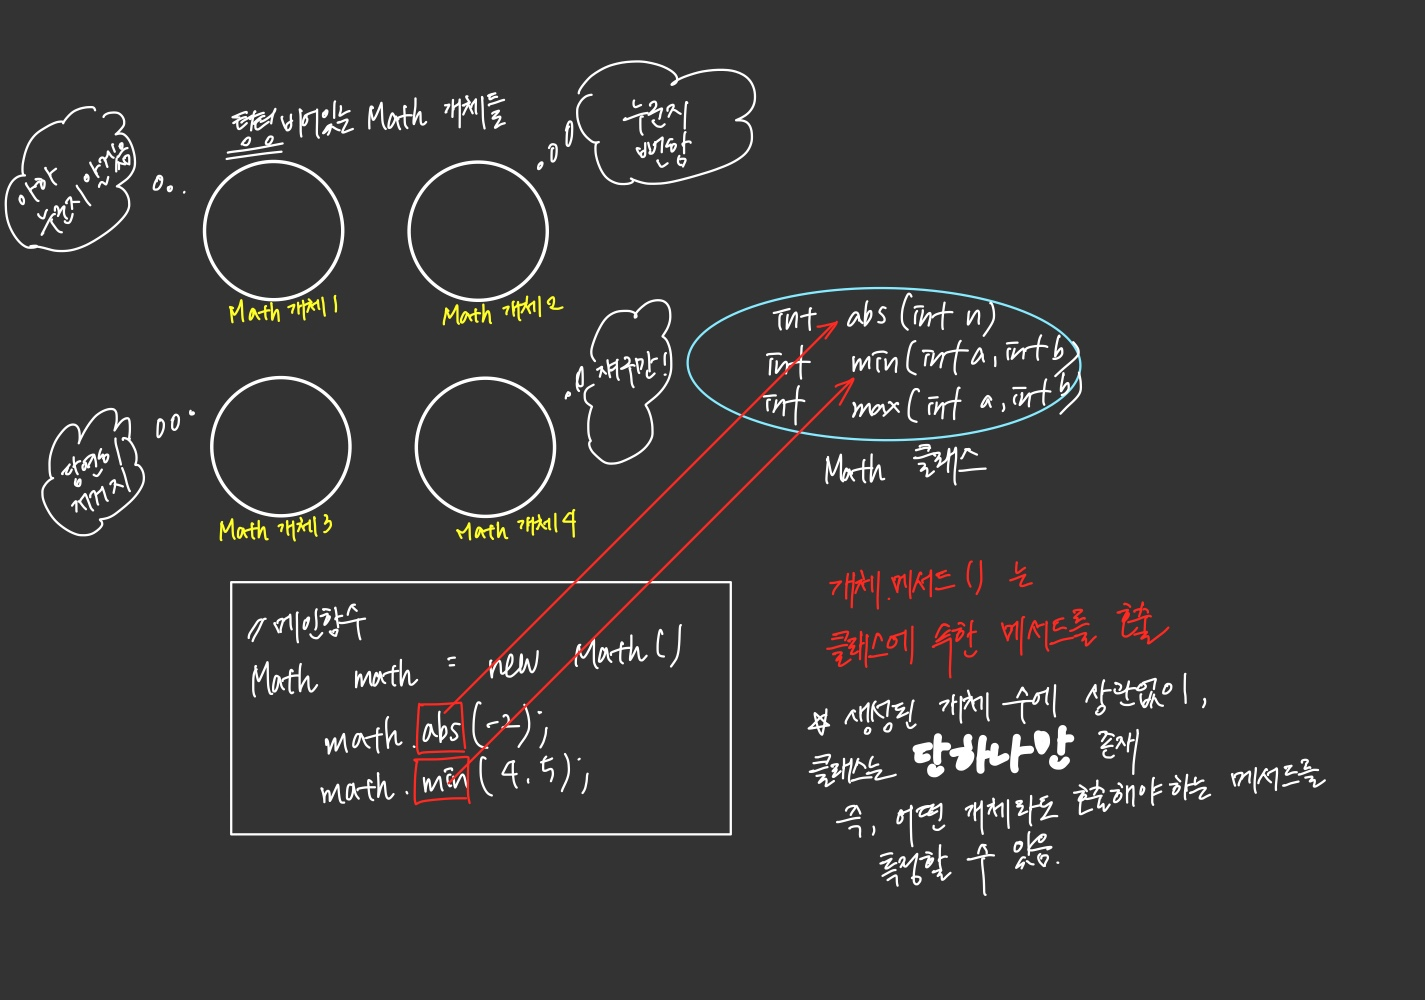 텅텅 비어있는 Math 개체들
누군지
뻔함
Math 개체1
Math 개체2
Math 개체3
Math 개체4
int abs (int n)
int min (int a, int b)
int max (int a, int b)
Math 클래스
//메인함수
Math math = new Math()
math.abs(-2);
math.min(4.5);
개체.메서드() 는
클래스에 속한 메서드를 호출
☆ 생성된 개체 수에 상관없이,
클래스는 단하나만 존재
즉, 어떤 개체라도 호출해야하는 메서드를
특정할 수 있음.